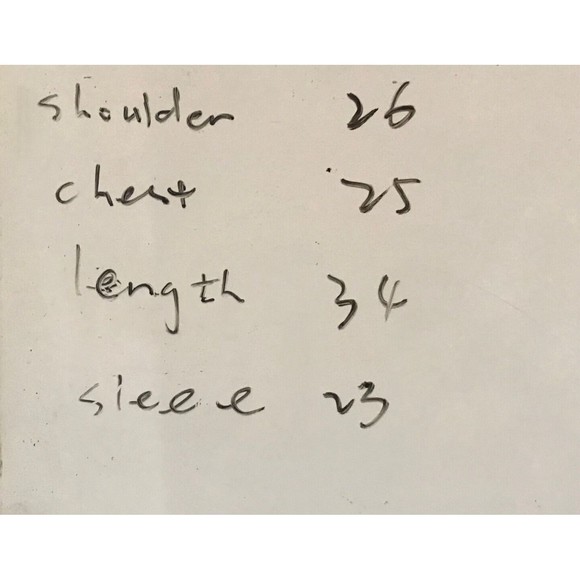 shoulder 26
chest 25
length 34
sleeve 23